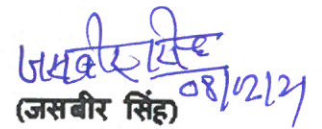 जसबीर सिंह
08/02/21
(जसबीर सिंह)